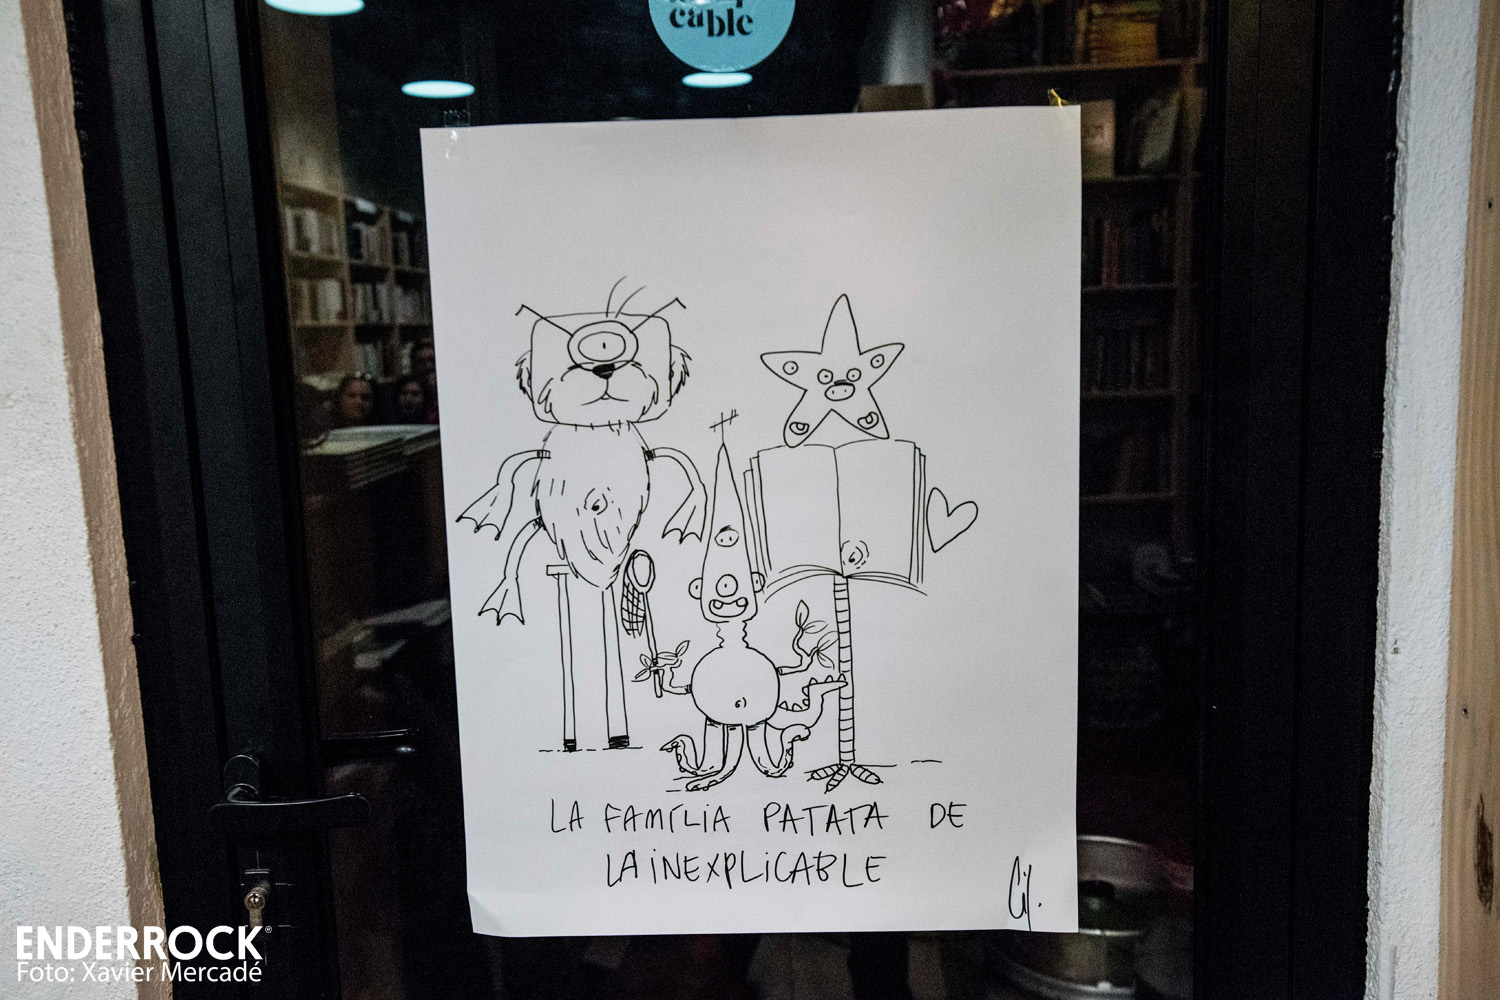 cable
LA FAMÍLIA PATATA DE
LA INEXPLICABLE
ENDERROCK®
Foto: Xavier Mercadé